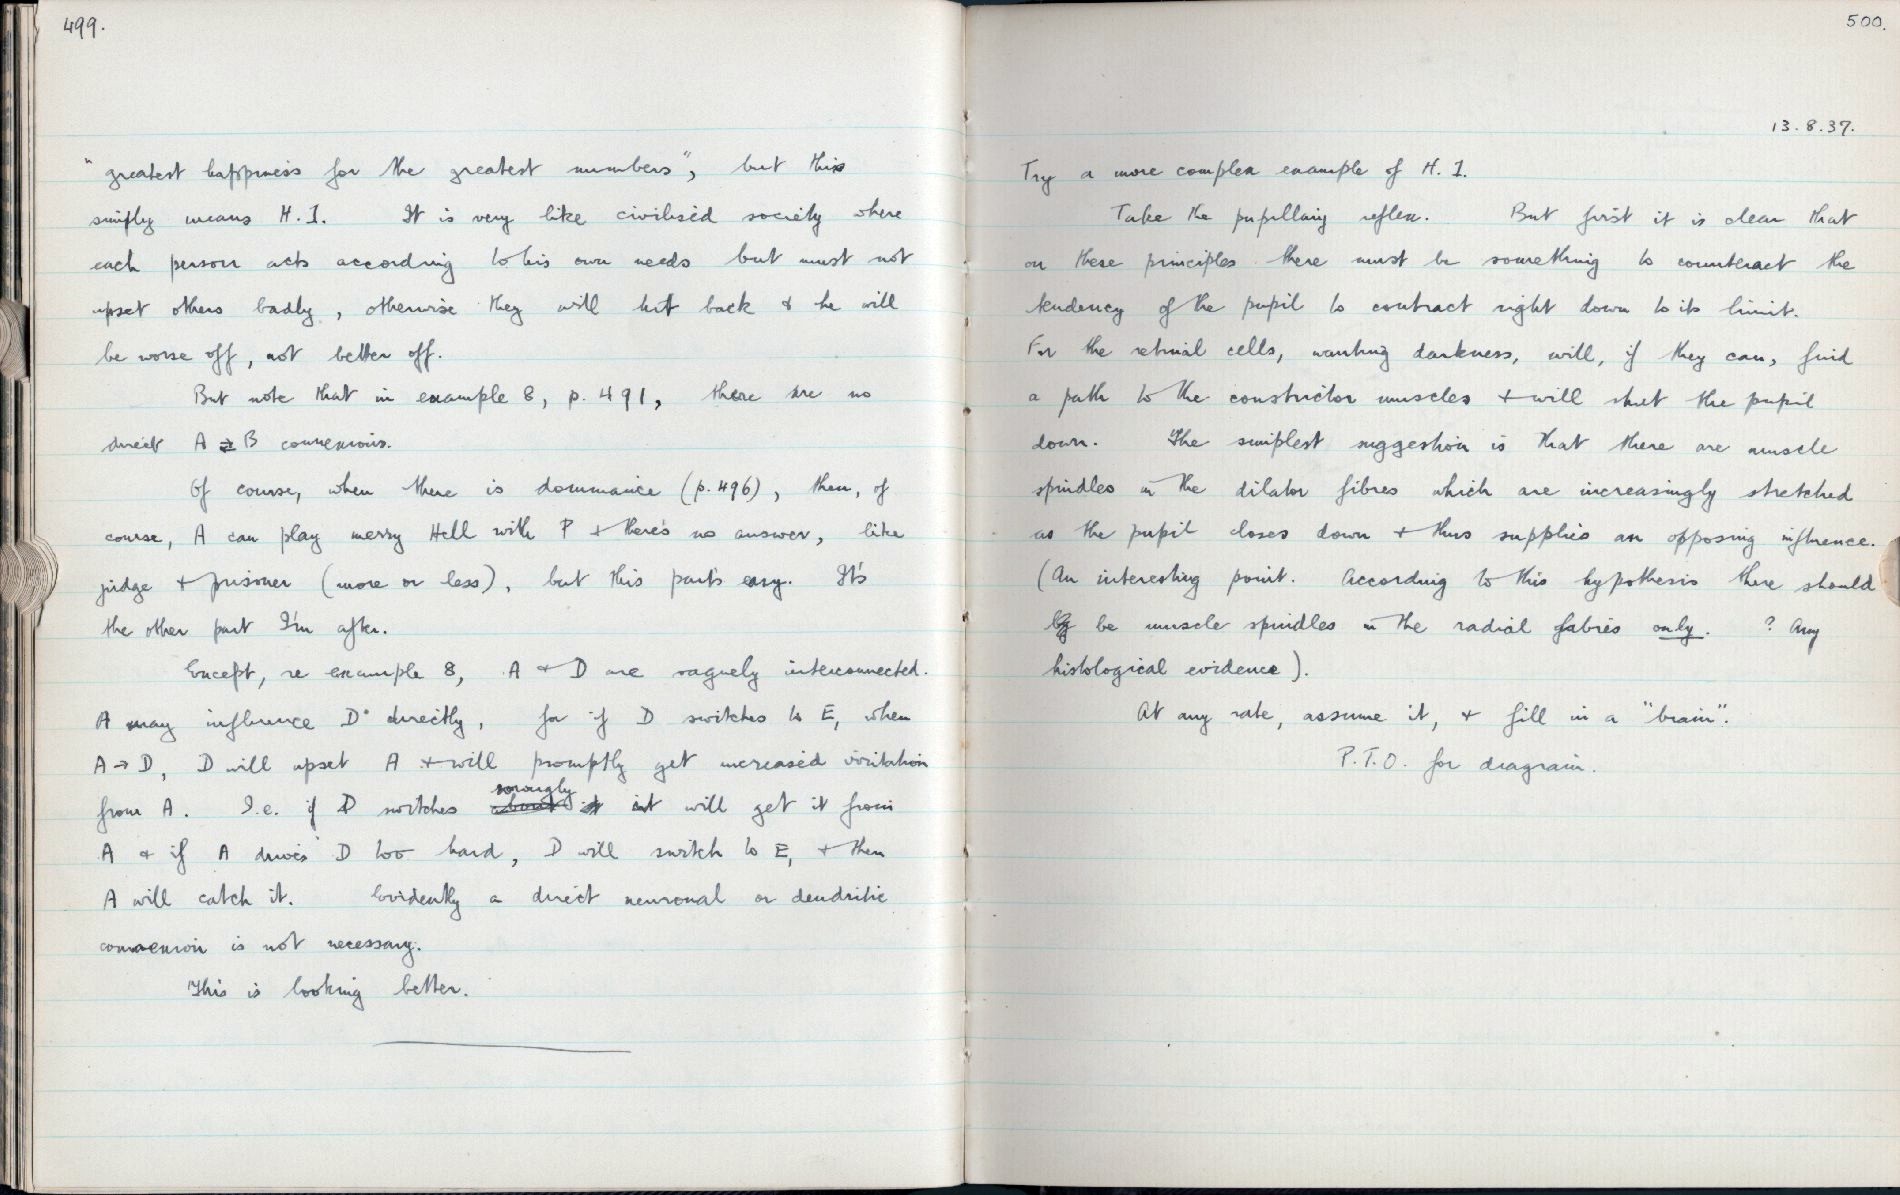 499.
"greatest happiness for the greatest numbers", but this
simply means H.I. It is very like civilised society where
each person acts according to his own needs but must not
upset others badly, otherwise they will hit back & he will
be worse off, not better off.
But note that in example 8, p. 491, there are no
direct A ⇄ B connexions.
Of course, when there is dominance (p. 496), then, of
course, A can play merry Hell with P & there's no answer, like
judge & prisoner (more or less), but this part's easy. It's
the other part I'm after.
Except, re example 8, A & D are vaguely interconnected.
A may influence D directly, for if D switches to E, when
A → D, D will upset A & will promptly get increased irritation
from A. I.e. if D switches about wrongly it will get it from
A & if A drives D too hard, D will switch to E, & then
A will catch it. Evidently a direct neuronal or dendritic
connexion is not necessary.
This is looking better.
500.
13.8.37.
Try a more complex example of H.I.
Take the pupillary reflex. But first it is clear that
on these principles there must be something to counteract the
tendency of the pupil to contract right down to its limit.
For the retinal cells, wanting darkness, will, if they can, find
a path to the constrictor muscles & will shut the pupil
down. The simplest suggestion is that there are muscle
spindles in the dilator fibres which are increasingly stretched
as the pupil closes down & thus supplies an opposing influence.
(An interesting point. According to this hypothesis there should
be muscle spindles in the radial fibres only. ? Any
histological evidence).
At any rate, assume it, & fill in a "brain".
P.T.O. for diagram.